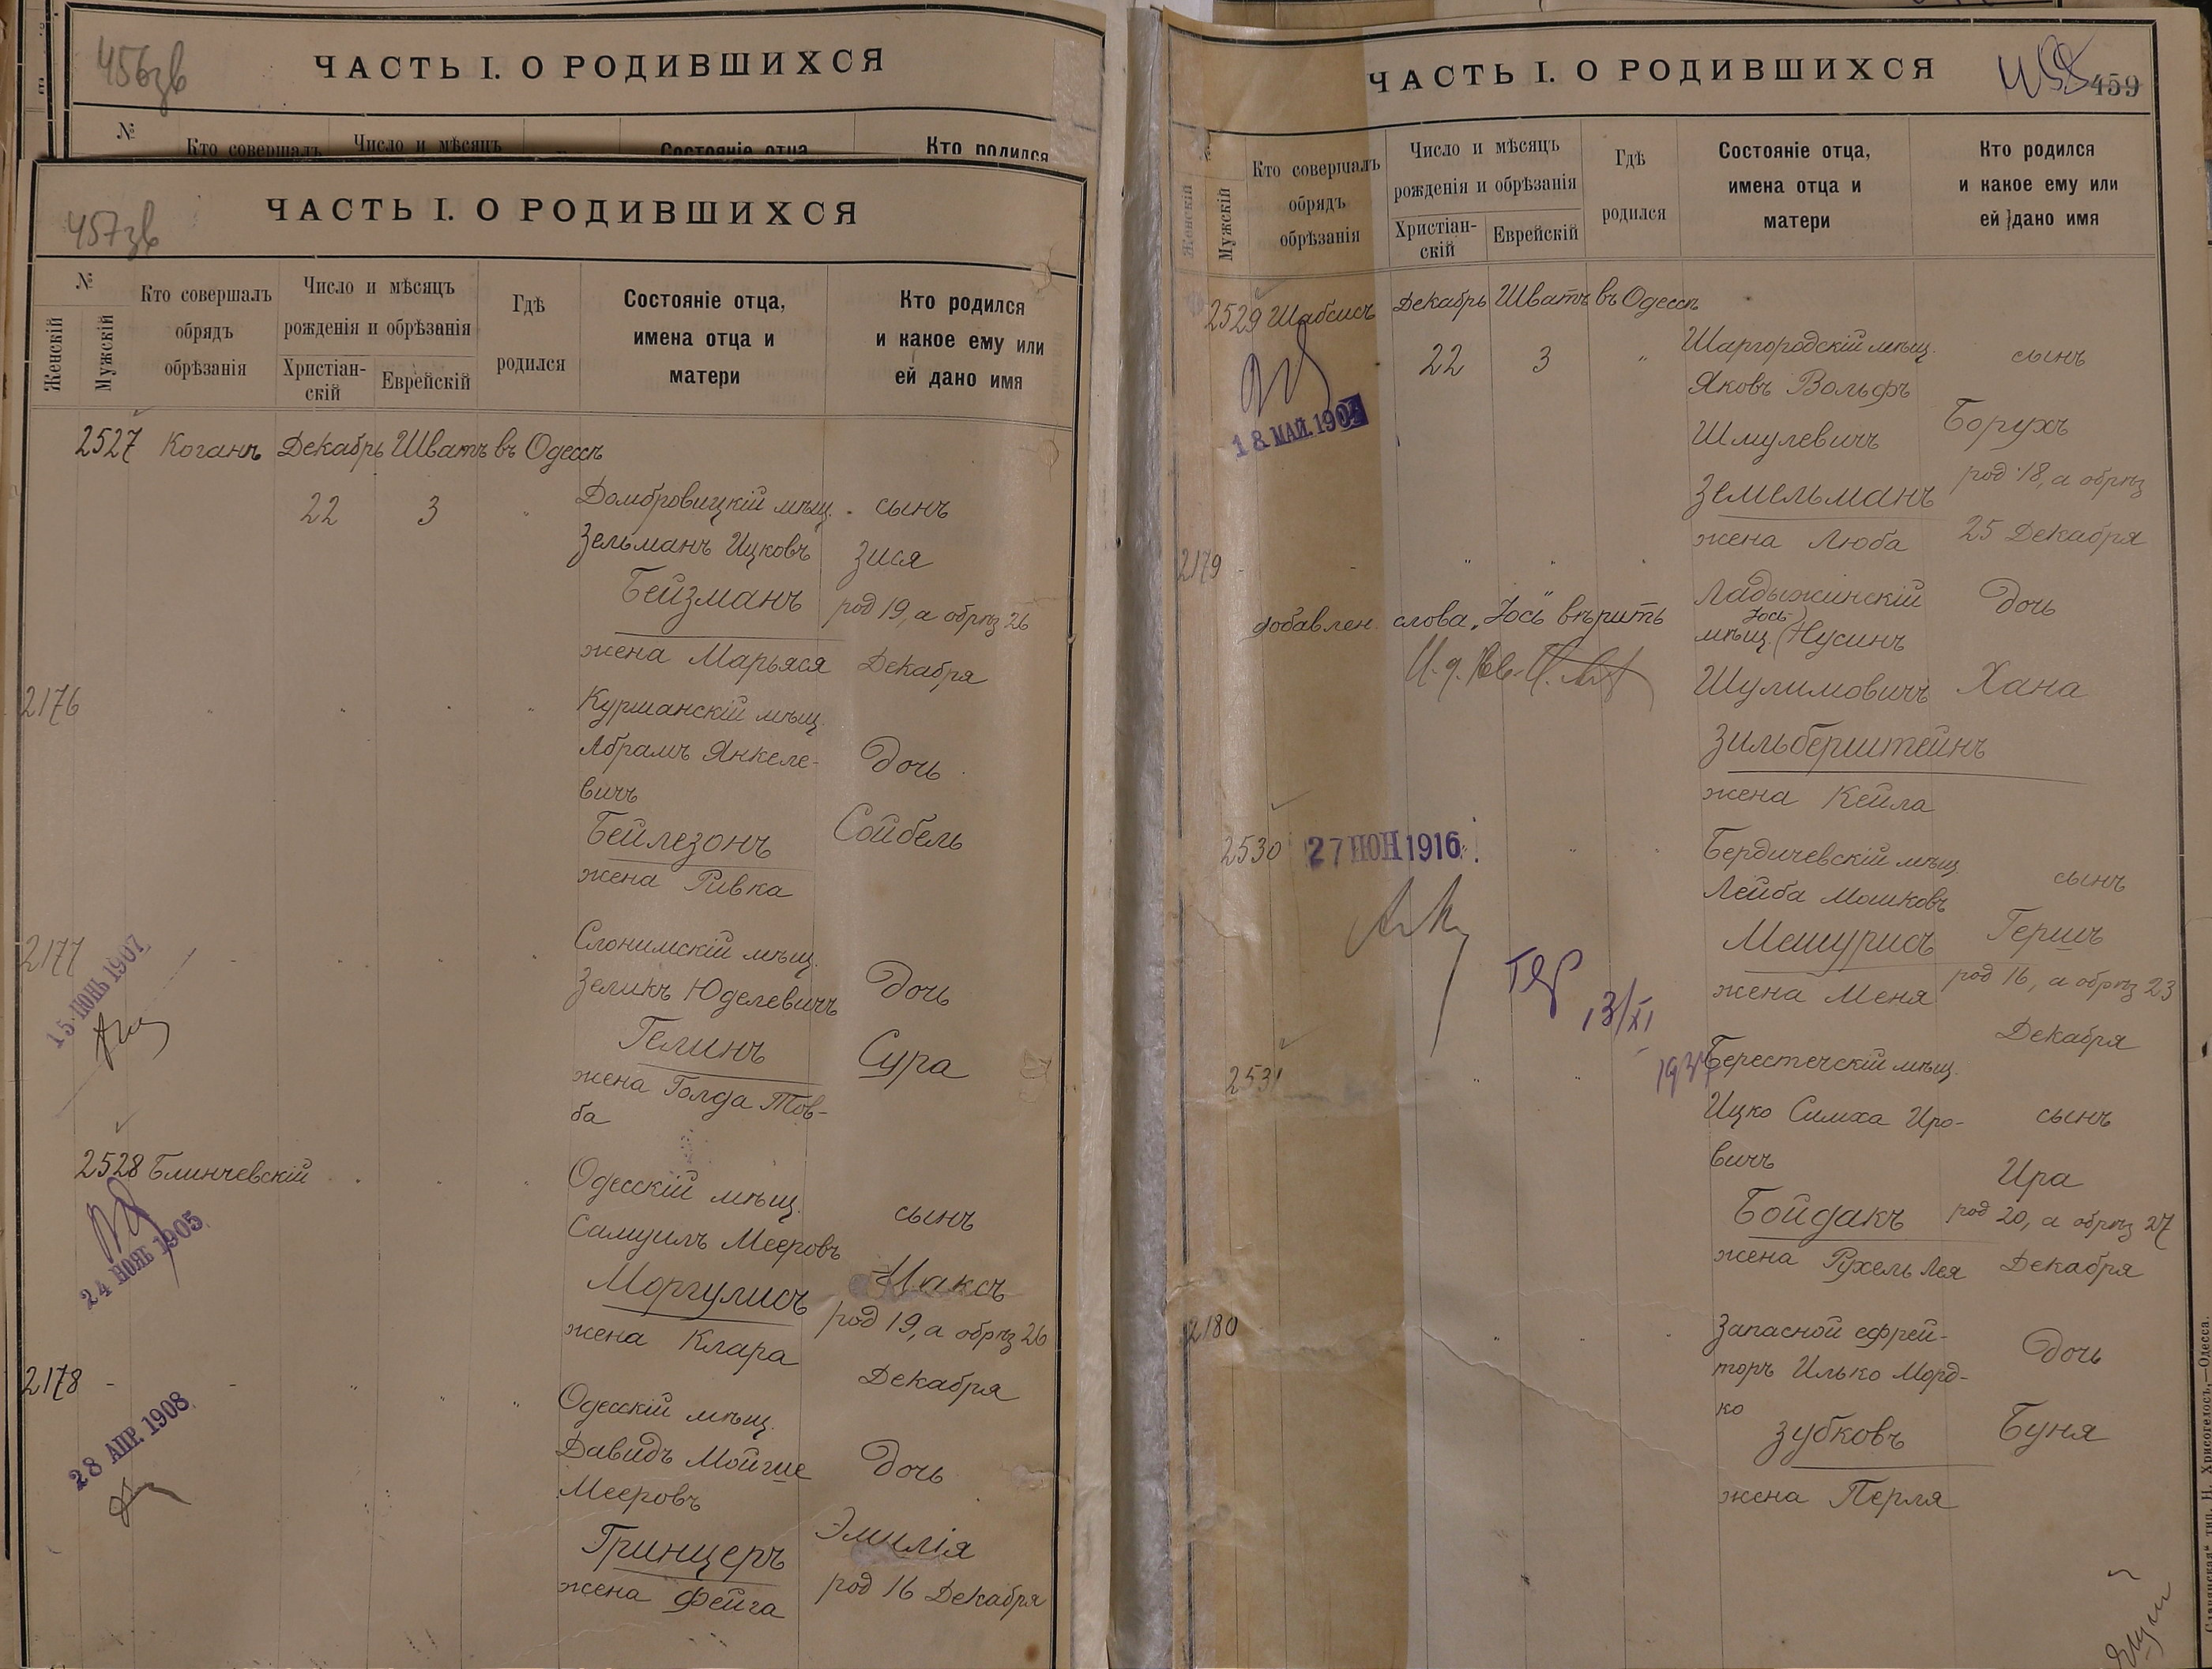 456зв
ЧАСТЬ I. О РОДИВШИХСЯ
№
Кто совершалъ
Число и мѣсяцъ
Состояніе отца
Кто родился
457зв
ЧАСТЬ I. О РОДИВШИХСЯ
№
Женскій
Мужскій
Кто совершалъ
обрядъ
обрѣзанія
Число и мѣсяцъ
рожденія и обрѣзанія
Христіан-
скій
Еврейскій
Гдѣ
родился
Состояніе отца,
имена отца и
матери
Кто родился
и какое ему или
ей дано имя
2527 Коганъ Декабрь Шватъ въ Одессѣ
22 3 Домбровицкій мѣщ. сынъ
Зельманъ Ицковъ Зися
Бейзманъ род 19, а обрѣз 26
жена Марьяся Декабря
2176 Куршанскій мѣщ.
Абрамъ Янкеле- Дочь
вичъ
Бейлезонъ Сойбель
жена Ривка
2177 Слонимскій мѣщ.
15 ІЮНЬ 1907
Зеликъ Юделевичъ Дочь
Гелинъ Сура
жена Голда Тов-
ба
2528 Блинчевскій Одесскій мѣщ. сынъ
24 НОЯБ 1905
Самуилъ Мееровъ
Моргулисъ Максъ
род 19, а обрѣз 26
жена Клара Декабря
2178 Одесскій мѣщ.
28 АПР. 1908
Давидъ Мойше Дочь
Мееровъ
Гринцеръ Эмилія
жена Фейга род 16 Декабря
ЧАСТЬ I. О РОДИВШИХСЯ
458 459
№
Женскій
Мужскій
Кто совершалъ
обрядъ
обрѣзанія
Число и мѣсяцъ
рожденія и обрѣзанія
Христіан-
скій
Еврейскій
Гдѣ
родился
Состояніе отца,
имена отца и
матери
Кто родился
и какое ему или
ей дано имя
2529 Шабсисъ Декабрь Шватъ въ Одессѣ
22 3 " Шаргородскій мѣщ. сынъ
18 МАЙ. 190
Яковъ Вольфъ
Шмулевичъ Борухъ
Земельманъ род 18, а обрѣз
жена Люба 25 Декабря
2179 Ладыжинскій Дочь
Юсь
добавлен. слова „Юсь" вѣрить мѣщ. (Нусинъ
Шулимовичъ Хана
Зильберштейнъ
жена Кейла
2530 27 ІЮН 1916 Бердичевскій мѣщ. сынъ
Лейба Мошковъ
Мешурисъ Гершъ
жена Меня род 16, а обрѣз 23
Декабря
13/XI
2531 Берестечскій мѣщ.
Ицко Симха Иро- сынъ
вичъ Ира
Бойдакъ род 20, а обрѣз 27
жена Рухель Лея Декабря
2180 Запасной ефрей- Дочь
торъ Илько Морд-
ко
Зубковъ Буня
жена Перля
Славянская" тип. Н. Хрисогелосъ,—Одесса.